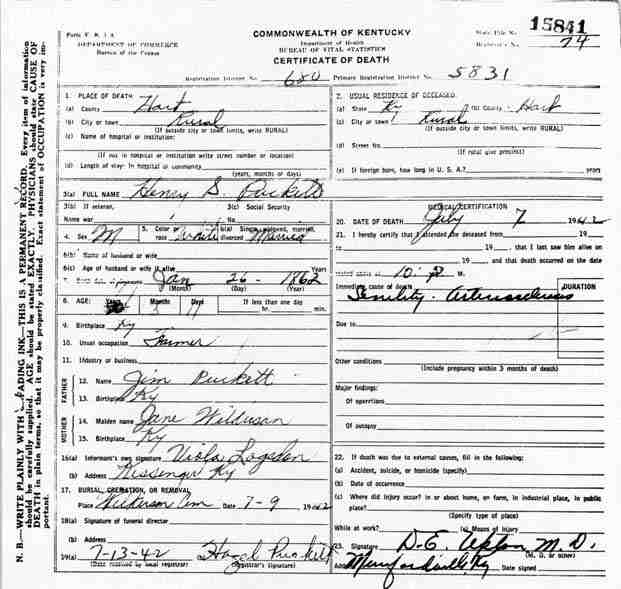 Form V. S. 1 A
DEPARTMENT OF COMMERCE
Bureau of the Census
COMMONWEALTH OF KENTUCKY
Department of Health
BUREAU OF VITAL STATISTICS
CERTIFICATE OF DEATH
State File No. 15841
Registrar's No. 74
Registration District No. 680 Primary Registration District No. 5831
N. B.—WRITE PLAINLY WITH UNFADING INK—THIS IS A PERMANENT RECORD. Every item of information
should be carefully supplied. AGE should be stated EXACTLY. PHYSICIANS should state CAUSE OF
DEATH in plain terms, so that it may be properly classified. Exact statement of OCCUPATION is very im-
portant.
1. PLACE OF DEATH
(a) County Hart
(b) City or town Rural
(If outside city or town limits, write RURAL)
(c) Name of hospital or institution:
(If not in hospital or institution write street number or location)
(d) Length of stay: In hospital or community
(years, months or days)
2. USUAL RESIDENCE OF DECEASED.
(a) State Ky (b) County Hart
(c) City or town Rural
(If outside city or town limits, write RURAL)
(d) Street No.
(If rural give precinct)
(e) If foreign born, how long in U. S. A.? years
3(a) FULL NAME Henry S. Puckett
3(b) If veteran,
Name war
3(c) Social Security
No.
4. Sex M 5. Color or race White 6(a) Single, widowed, married, divorced Married
6(b) Name of husband or wife
6(c) Age of husband or wife if alive Years
Jan 26 - 1862
(Month) (Day) (Year)
8. AGE: Years Months Days If less than one day
hr. min.
9. Birthplace Ky
10. Usual occupation Farmer
11. Industry or business
FATHER
12. Name Jim Puckett
13. Birthplace Ky
MOTHER
14. Maiden name Jane
15. Birthplace Ky
16(a) Informant's own signature Viola Logsdon
(b) Address Ky
17. BURIAL, CREMATION, OR REMOVAL
Place Cem Date 7-9 1942
18(a) Signature of funeral director
(b) Address
19(a) 7-13-42 Hazel Puckett
(Date received by local registrar) (Registrar's signature)
MEDICAL CERTIFICATION
20. DATE OF DEATH July 7 1942
21. I hereby certify that I attended the deceased from 19
to 19 , that I last saw him alive on
19 , and that death occurred on the date
stated above at 10 P M.
Immediate cause of death DURATION
Senility - 
Due to
Other conditions
(Include pregnancy within 3 months of death)
Major findings:
Of operations
Of autopsy
22. If death was due to external causes, fill in the following:
(a) Accident, suicide, or homicide (specify)
(b) Date of occurrence
(c) Where did injury occur? in or about home, on farm, in industrial place, in public
place?
(Specify type of place)
While at work? (e) Means of injury
23. Signature D. E. Upton M. D.
(M. D. or other)
Address Munfordville, Ky Date signed